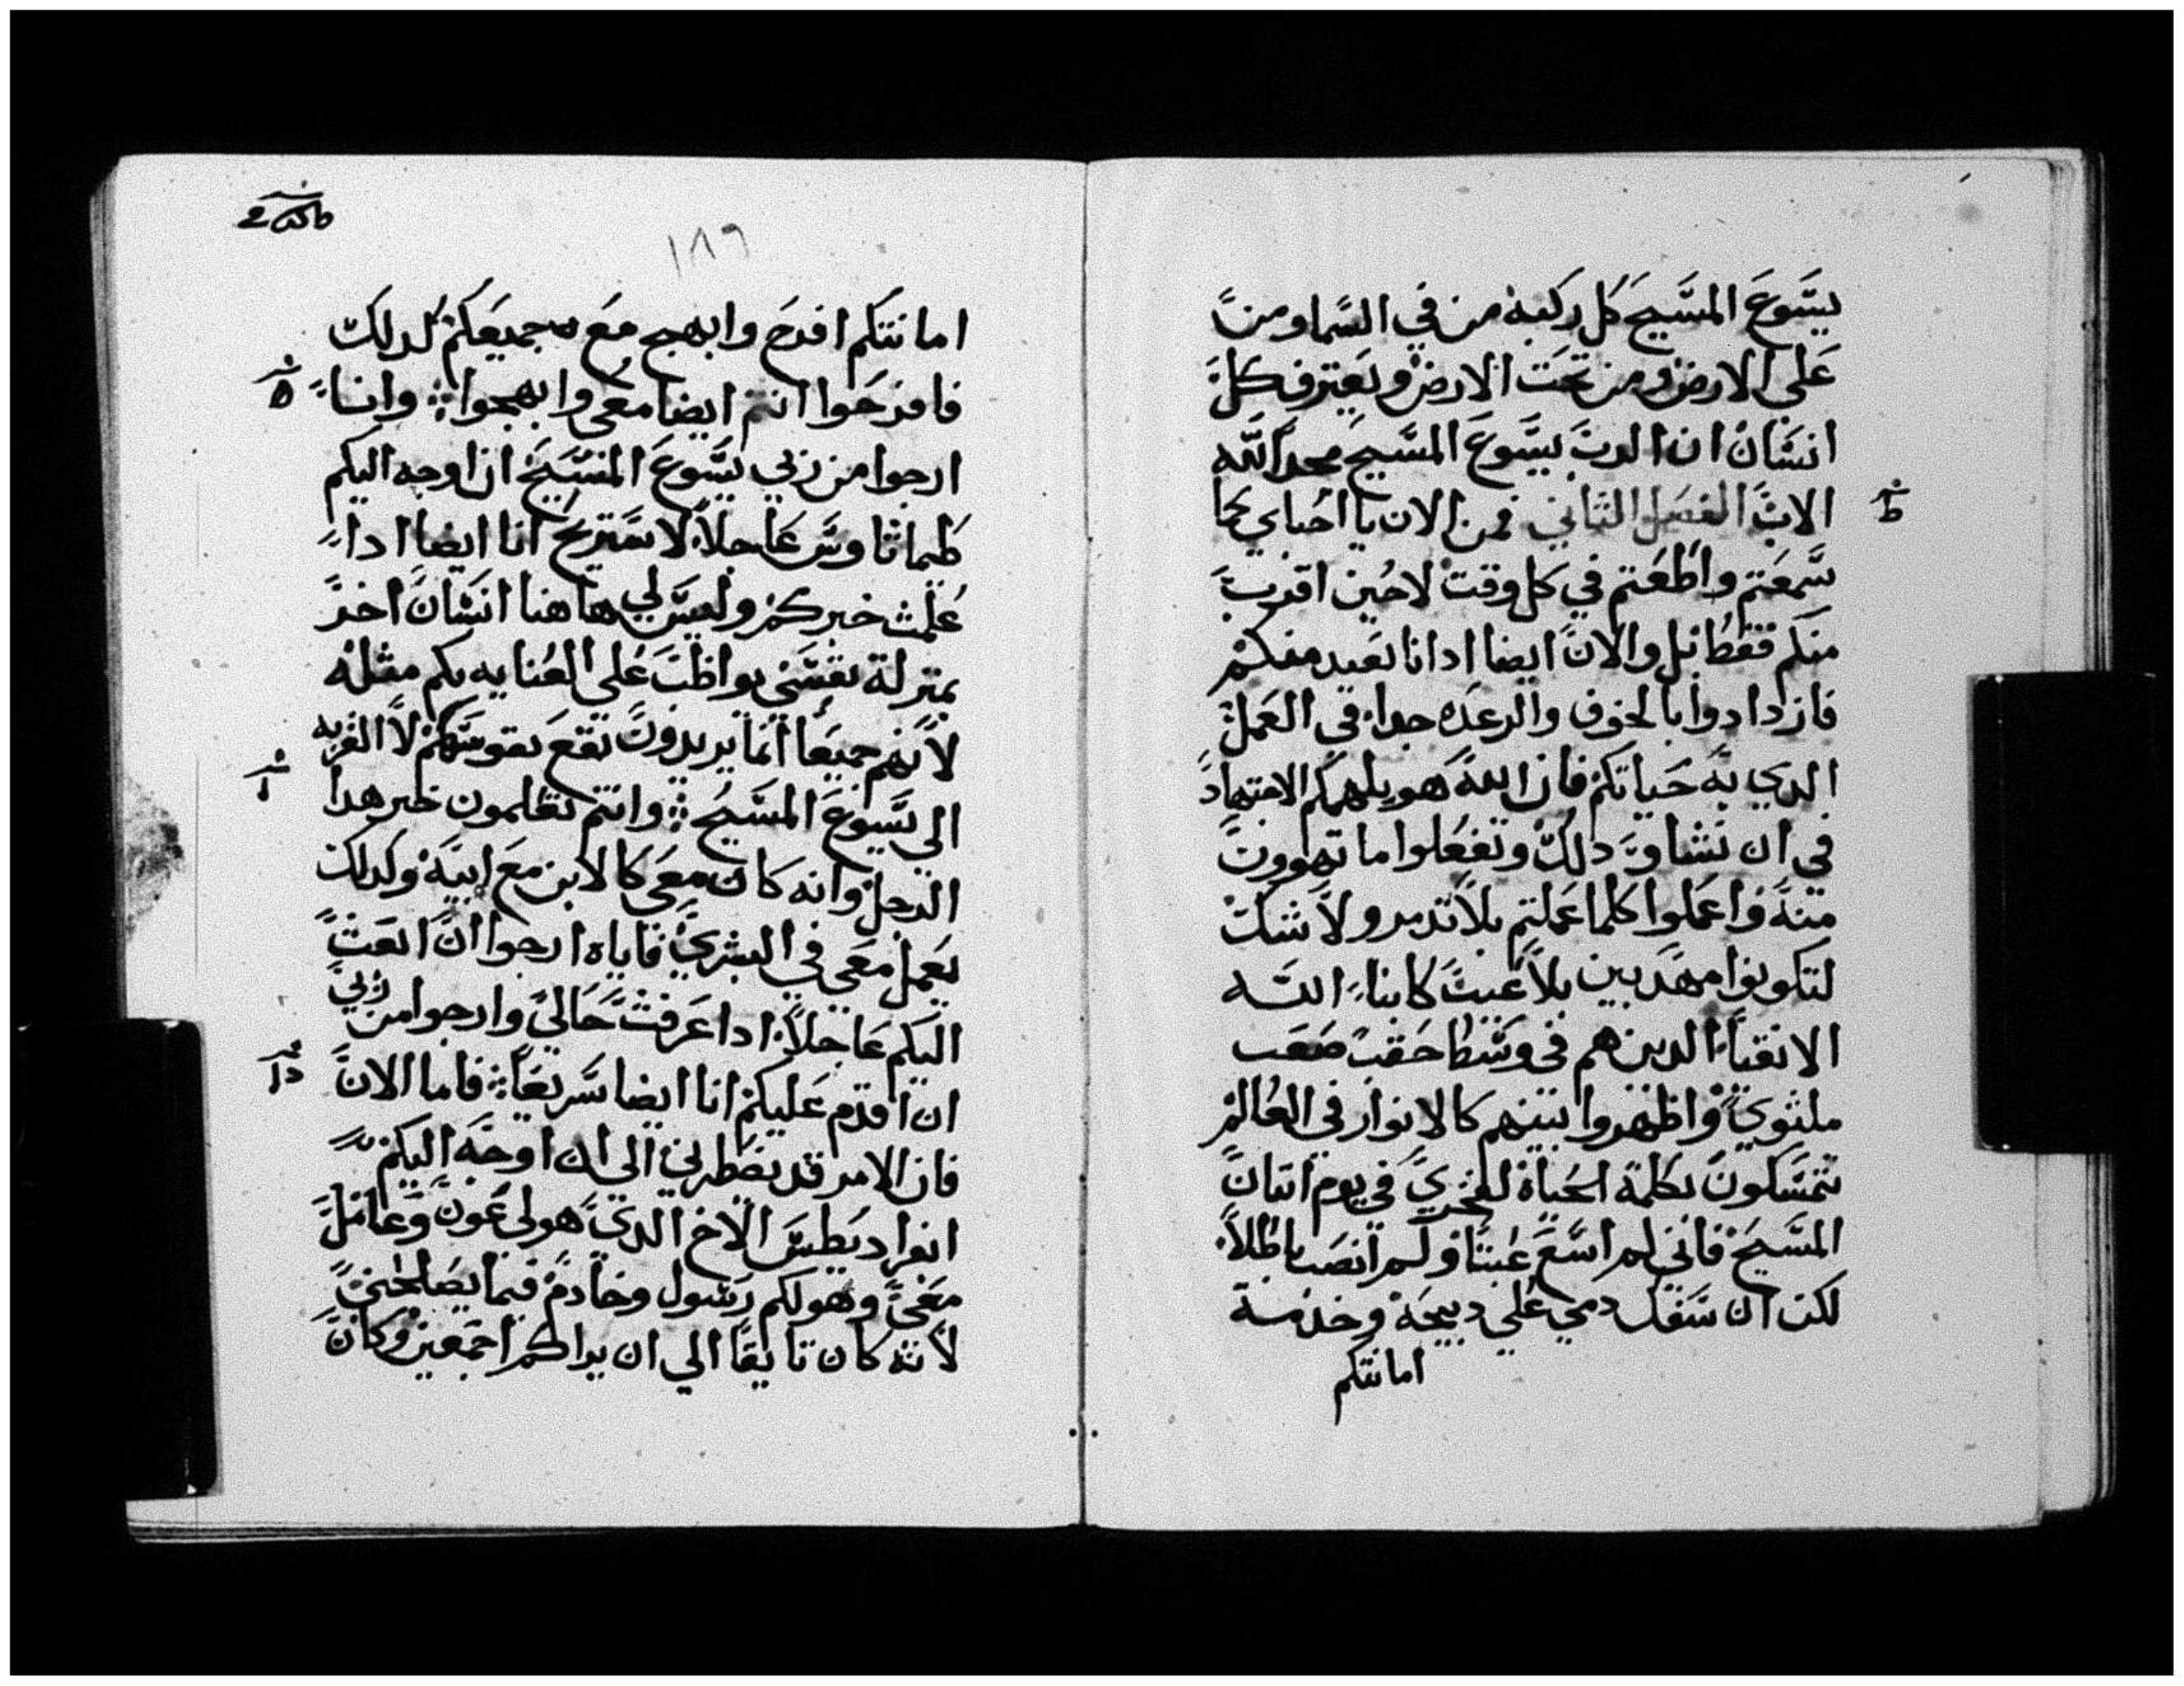 يسوع المسيح كل ركبة من في السما ومن
على الارض ومن تحت الارض ويعترف كل
انسان ان الرب يسوع المسيح مجد الله
الاب الفصل الثاني فمن الان يا احباي كما
سمعتم واطعتم في كل وقت لا حين اقرب
منكم فقط بل والان ايضا ادانا بعيد منكم
فازدادوا بالخوف والرعده جدا في العمل
الدي به حياتكم فان الله هو يلهمكم الاجتهاد
في ان تشاوا دلك وتفعلوا ما تهوون
منه واعملوا كلما عملتم بلا تدمر ولا شك
لتكونوا مهدبين بلا عيب كابناء الله
الانقياء الدين هم في وسط حقب صعب
ملتوي واظهروا بينهم كالانوار في العالم
تتمسكون بكلمة الحياة لفخري في يوم اتيان
المسيح فاني لم اسع عبثا ولم انصب باطلا
لكن ان سفك دمي على دبيحة وخدمة
امانتكم
١٨٦
امانتكم افرح وابهج مع جميعكم كدلك
فافرحوا انتم ايضا معي وابهجوا وانا
ارجوا من ربي يسوع المسيح ان اوجه اليكم
طيماثاوس عاجلا لاستريح انا ايضا ادا
علمت خبركم وليس لي هاهنا انسان اخر
بمنزلة نفسي يواظب على العنايه بكم مثله
لانهم جميعا انما يريدون نفع نفوسهم لا القربه
الي يسوع المسيح وانتم تعلمون خبر هدا
الرجل وانه كان معي كالابن مع ابيه وكدلك
يعمل معي في البشري فاياه ارجوا ان ابعث
اليكم عاجلا ادا عرفت حالي وارجوا من ربي
ان اقدم عليكم انا ايضا سريعا فاما الان
فان الامر قد يضطرني الى ان اوجه اليكم
ابفراديطس الاخ الدي هو لي عون وعامل
معي وهو لكم رسول وخادم فيما يصالحني
لانه كان تايقا الي ان يراكم اجمعين وكان